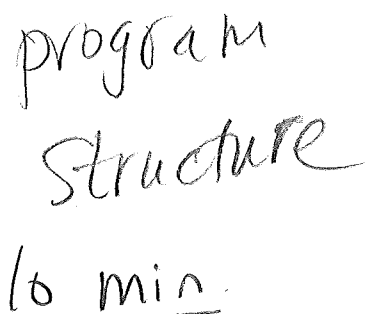 program
structure
10 min.